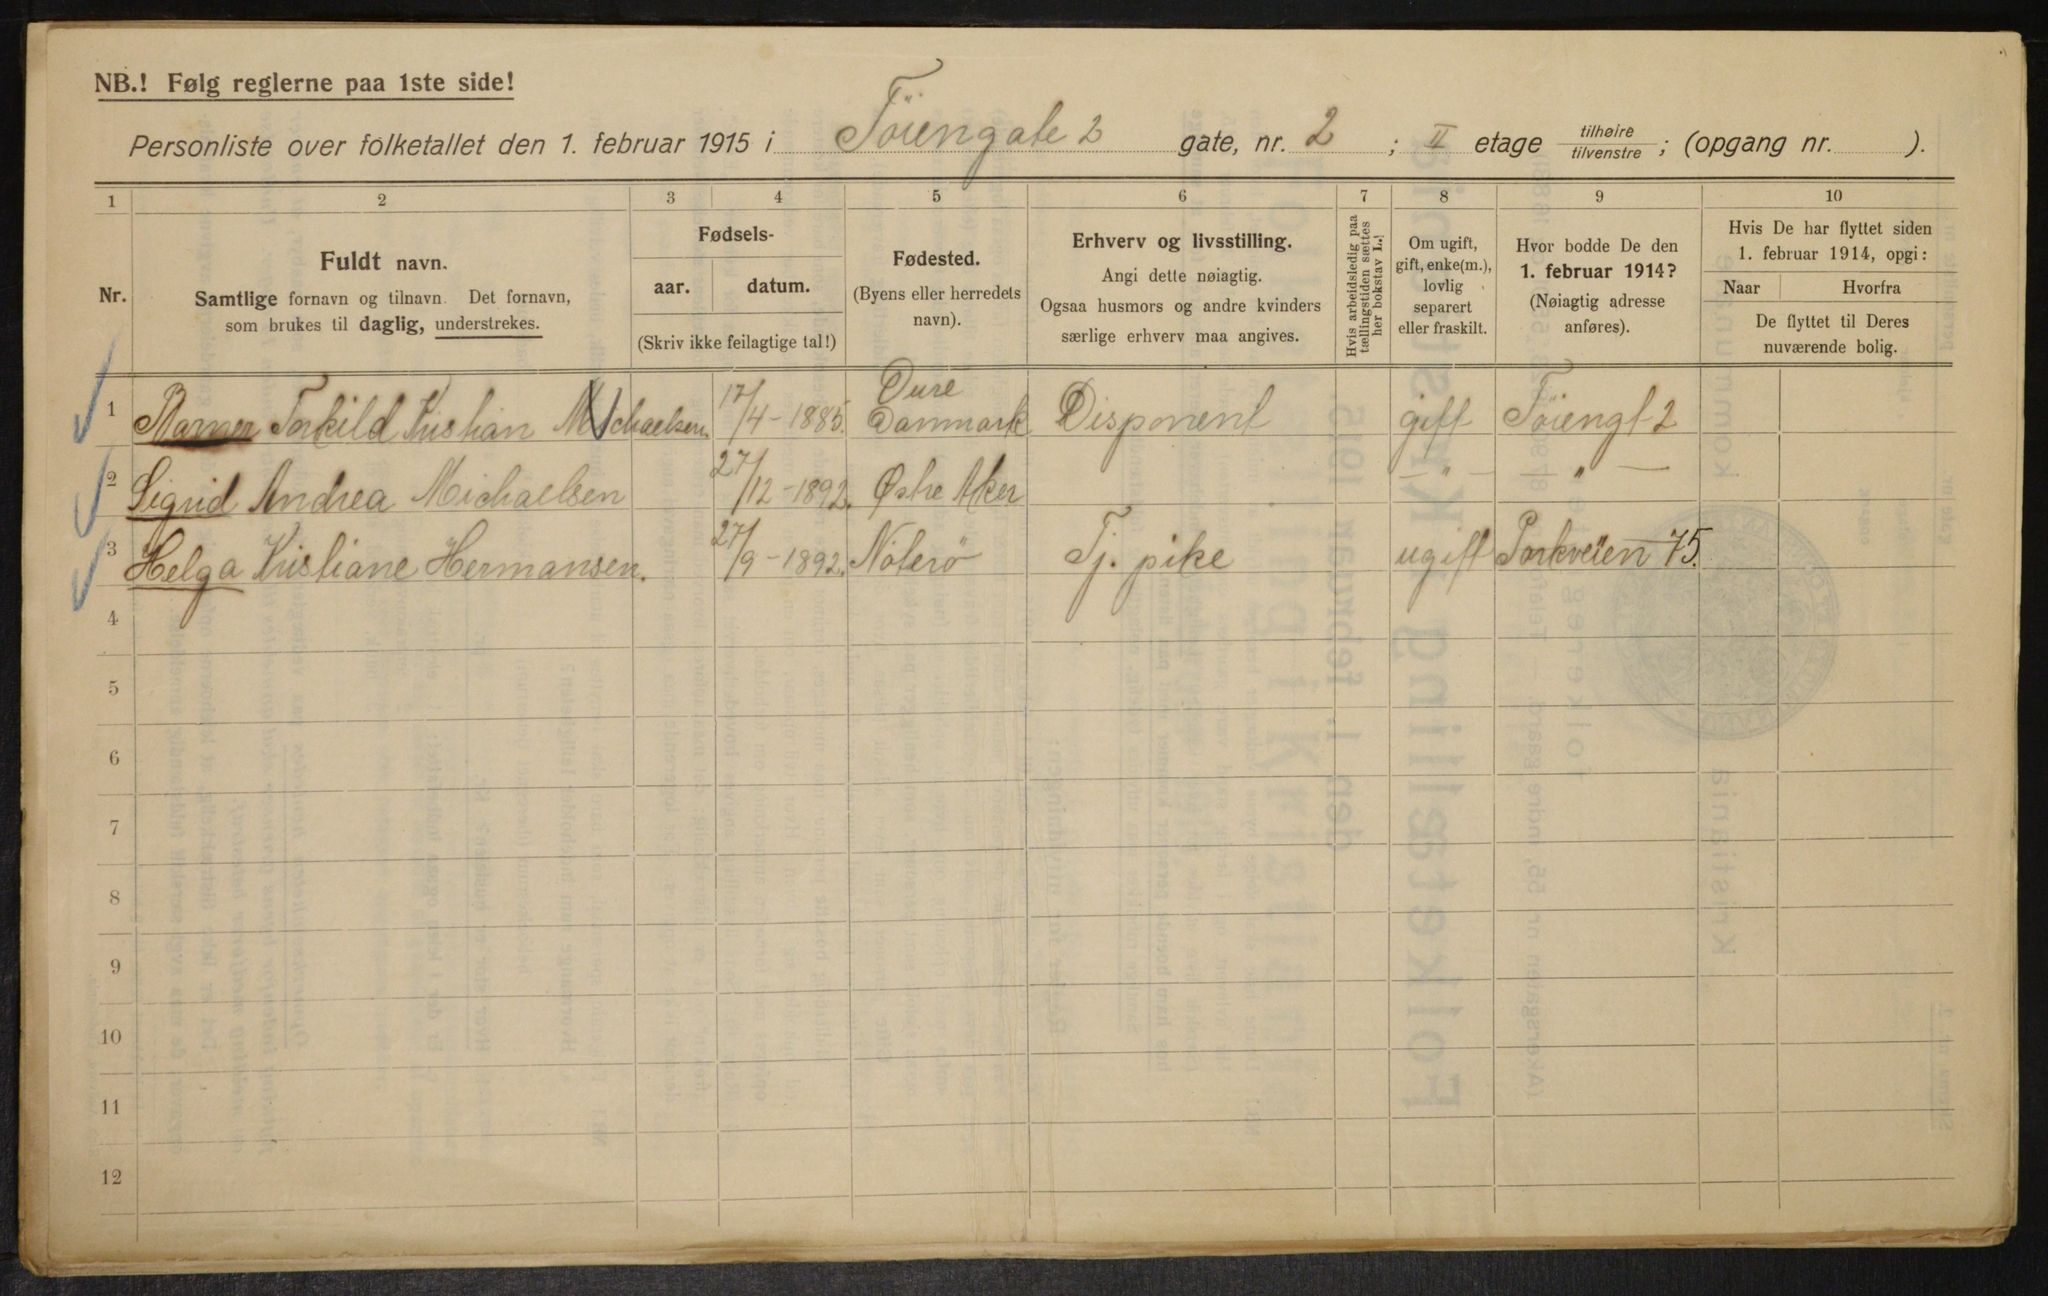 NB.! Følg reglerne paa 1ste side!
Personliste over folketallet den 1. februar 1915 i Töiengate 2 gate, nr. 2 ; II etage tilhøire tilvenstre ; (opgang nr. ).
1 2 3 4 5 6 7 8 9 10
Nr.
Fuldt navn.
Samtlige fornavn og tilnavn. Det fornavn,
som brukes til daglig, understrekes.
Fødsels-
aar. datum.
(Skriv ikke feilagtige tal!)
Fødested.
(Byens eller herredets
navn).
Erhverv og livsstilling.
Angi dette nøiagtig.
Ogsaa husmors og andre kvinders
særlige erhverv maa angives.
Hvis arbeidsledig paa
tællingstiden sættes
her bokstav L.!
Om ugift,
gift, enke(m.),
lovlig
separert
eller fraskilt.
Hvor bodde De den
1. februar 1914?
(Nøiagtig adresse
anføres).
Hvis De har flyttet siden
1. februar 1914, opgi:
Naar Hvorfra
De flyttet til Deres
nuværende bolig.
1 Torkild Kristian Michaelsen. 17/4-1885. Dure Danmark Disponent gift Töiengt 2
2 Sigrid Andrea Michaelsen 27/12-1892. Østre Aker " — " —
3 Helga Kristiane Hermansen. 27/9-1892. Nöterö Tj. pike ugift Parkveien 75.
4
5
6
7
8
9
10
11
12